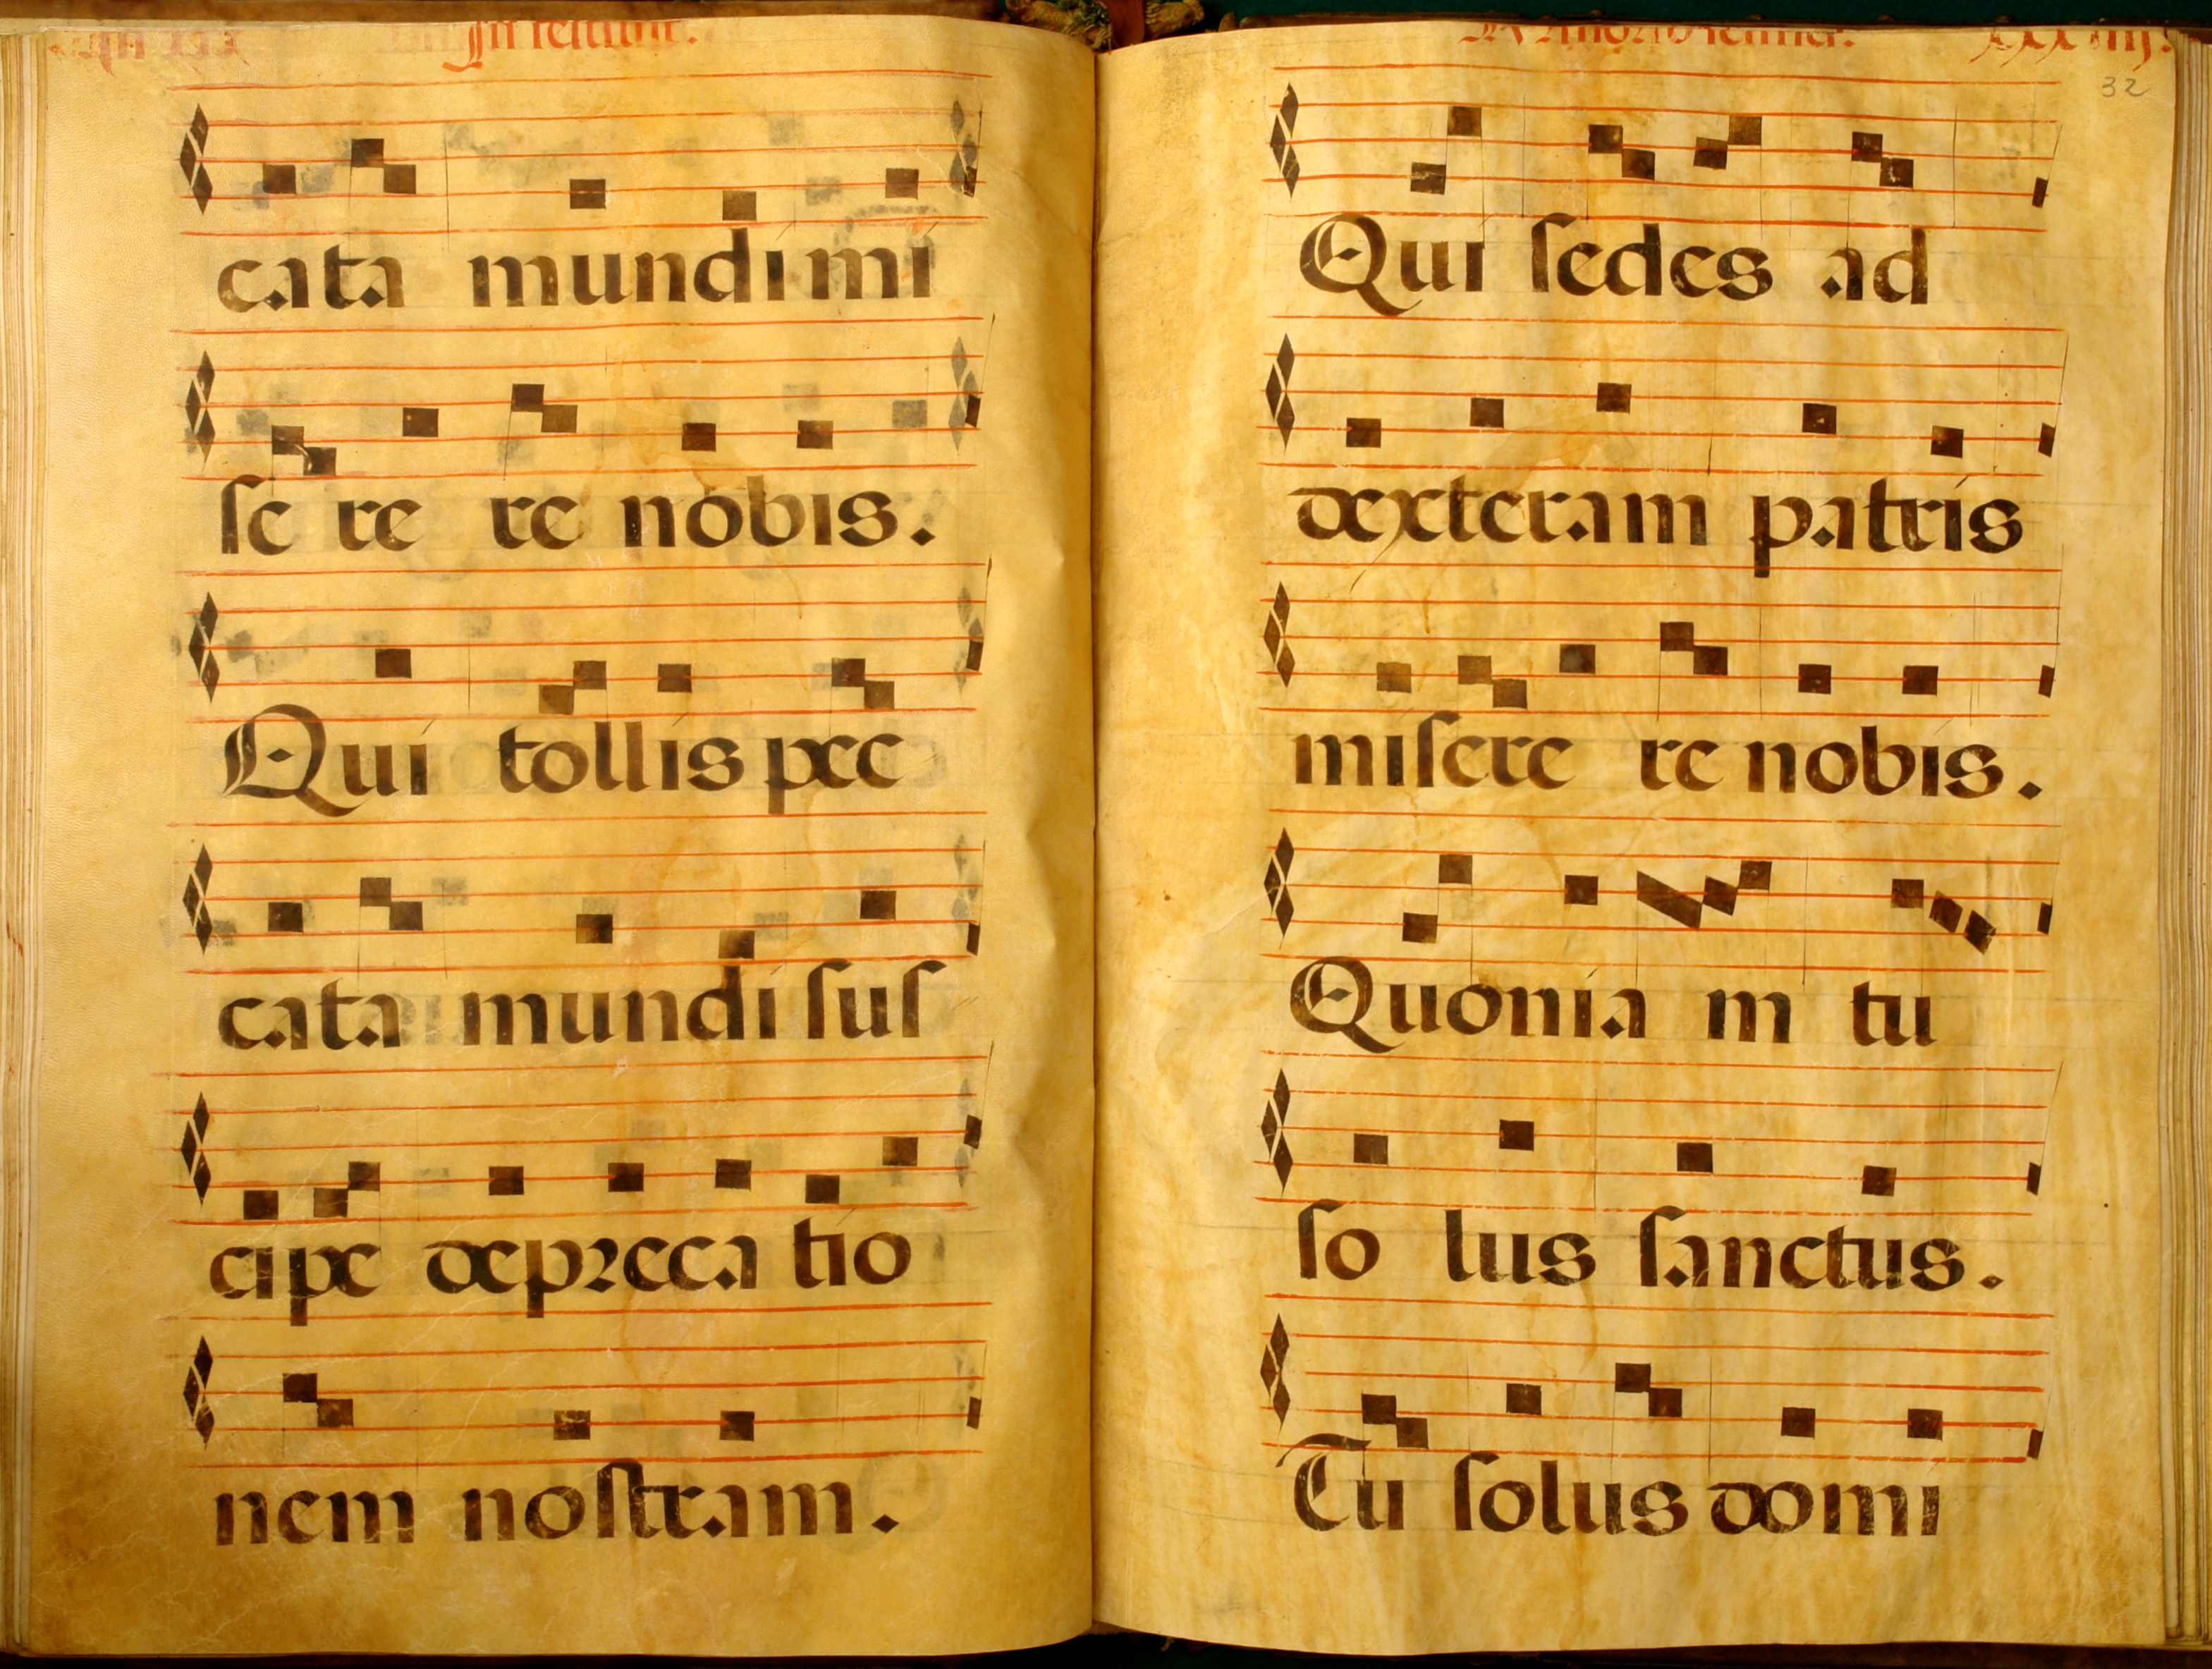 cata mundi mi
ſe re re nobis.
Qui tollis pec
cata mundi ſuſ
cipe depreca tio
nem noſtram.
32
Qui ſedes ad
dexteram patris
miſere re nobis.
Quonia m tu
ſo lus ſanctus.
Tu ſolus domi